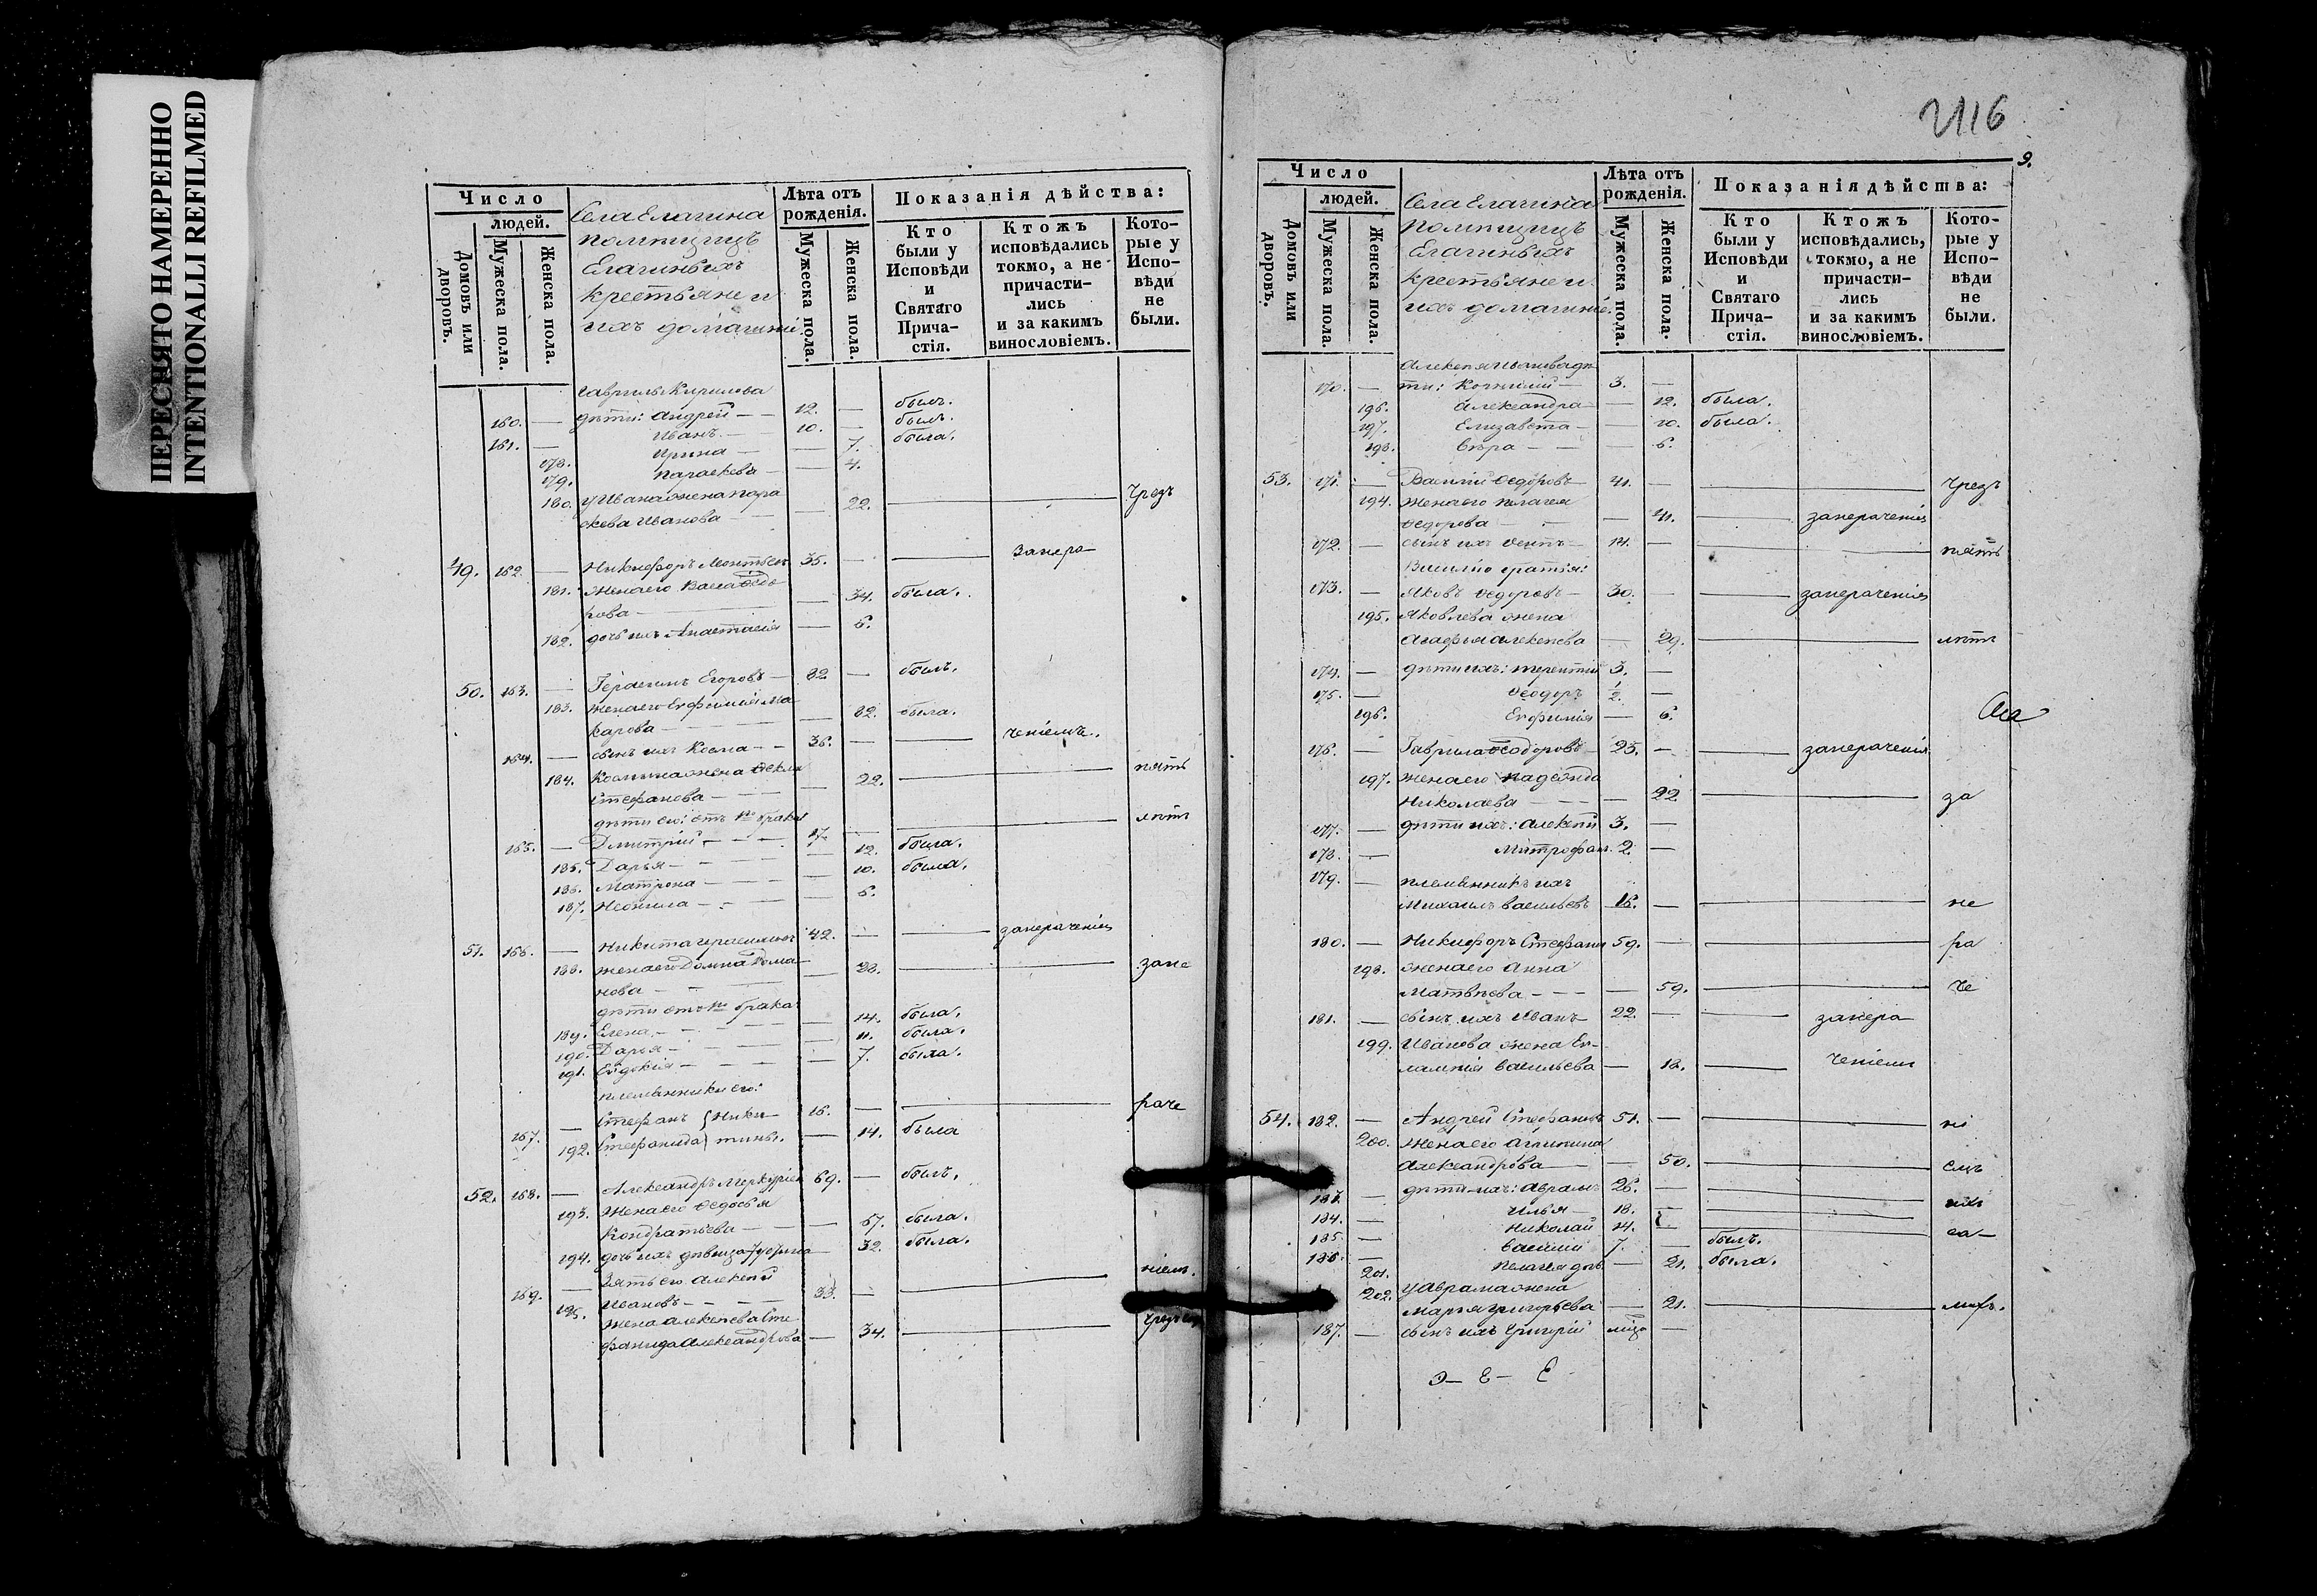 ПЕРЕСНЯТО НАМЕРЕННО
INTENTIONALLI REFILMED
Число
людей.
Домовъ или дворовъ.
Мужеска пола.
Женска пола.
Села Елагина
помѣщицъ
Елагиныхъ
крестьяне и
ихъ домашніе
Лѣта отъ рожденія.
Мужеска пола.
Женска пола.
Показанія дѣйства:
Кто были у Исповѣди и Святаго Прича-стія.
Ктожъ исповѣдались токмо, а не причасти-лись и за какимъ винословіемъ.
Кото-рые у Испо-вѣди не были.
Гавриилъ Кирилова
160. — дѣти: Андрей — — 12. — былъ.
161. — Иванъ — 10. — былъ.
178. Ирина — — 7. была.
179. Параскева — — 4.
180. у Ивана жена Пара
скева Иванова — — 22. чрезъ
49. 162. — Никифоръ 35. — — запера
181. жена его Васса Ѳедо
рова — — 34. была.
182. дочь ихъ Анастасія — 6.
50. 163. — Герасимъ Егоровъ — 82. — былъ.
183. жена его Евфимія Ма
карова — — 82. была.
164. — сынъ ихъ Косма — — 36. — — ченіемъ.
184. Космина жена Ѳекла
Стефанова — — 22. пять
дѣти его отъ 1го брака
165. — Дмитрій — — 17. — лѣтъ
185. Дарья — — 12. была.
186. Матрона — — 10. была.
187. Неонила — — 6.
51. 166. — Никита Герасимовъ 42. — — заперачениемъ
188. жена его Домна Рома
нова — — 28. запе
дѣти отъ 1го брака
189. Елена — — 14. была.
190. Дарья — — 11. была.
191. Евдокія — — 7. была.
племянники его:
167. — Стефанъ } Ники 16. — раче
192. Стефанида } тины. — 14. была
52. 168. — Александръ Меркурьев 69. — былъ.
193. жена его Ѳедосья
Кондратьева — — 67. была.
194. дочь ихъ дѣвица — 32. была.
169. — зять его Алексѣй
Ивановъ — — 33. — ніем.
195. жена Алексѣева Сте
фанида Александрова — 34. чрезъ
2116
9.
Число
людей.
Домовъ или дворовъ.
Мужеска пола.
Женска пола.
Села Елагина
помѣщицъ
Елагиныхъ
крестьяне и
ихъ домашніе.
Лѣта отъ рожденія.
Мужеска пола.
Женска пола.
Показанія дѣйства:
Кто были у Исповѣди и Святаго Прича-стія.
Ктожъ исповѣдались, токмо, а не причасти-лись и за какимъ винословіемъ.
Кото-рые у Испо-вѣди не были.
Алексѣя Иванова дѣ
170. — ти: Корнилій — 3. —
196. Александра — — 12. была.
197. Елизавета — — 10. была.
198. Вѣра — — 6.
53. 171. — Василій Ѳедоровъ 41. — чрезъ
194. жена его Пелагея
Ѳедорова — — 41. — заперачениемъ
172. — сынъ ихъ 14. — пять
Василію братья:
173. — Яковъ Ѳедоровъ — 30. — — заперачениемъ
195. Яковлева жена
Агафья Алексѣева — 29. лѣтъ
174. — дѣти ихъ: Терентій 3. —
175. — Ѳеодоръ 2. —
196. Евфимія — 6.
176. — Гаврила Ѳеодоровъ 25. — — заперачения
197. жена его Надежда
Николаева — — 22. за
177. — дѣти ихъ: Алексѣй 3. —
178. — Митрофанъ. 2. —
179. — племянникъ ихъ
Михаилъ Васильевъ 16. — не
180. — Никифоръ Стефанов 59. — ра
198. жена его Анна
Матвѣева — — 59. че
181. — сынъ ихъ Иванъ 22. — — запера
199. Иванова жена Ев-
лампія Васильева — 18. — ченіем
54. 182. — Андрей Стефановъ 51. — ні
200. жена его Агрипина
Александрова — 50. емъ
183. — дѣти ихъ: Аврамъ 26. — ихъ
184. — Илья — 18. —
185. — Николай 14. — са—
186. — Василій 7. — былъ.
201. Пелагея дочь — 21. была.
202. у Аврама жена
Марья Григорьева — 21.
187. — сынъ ихъ Григорій —